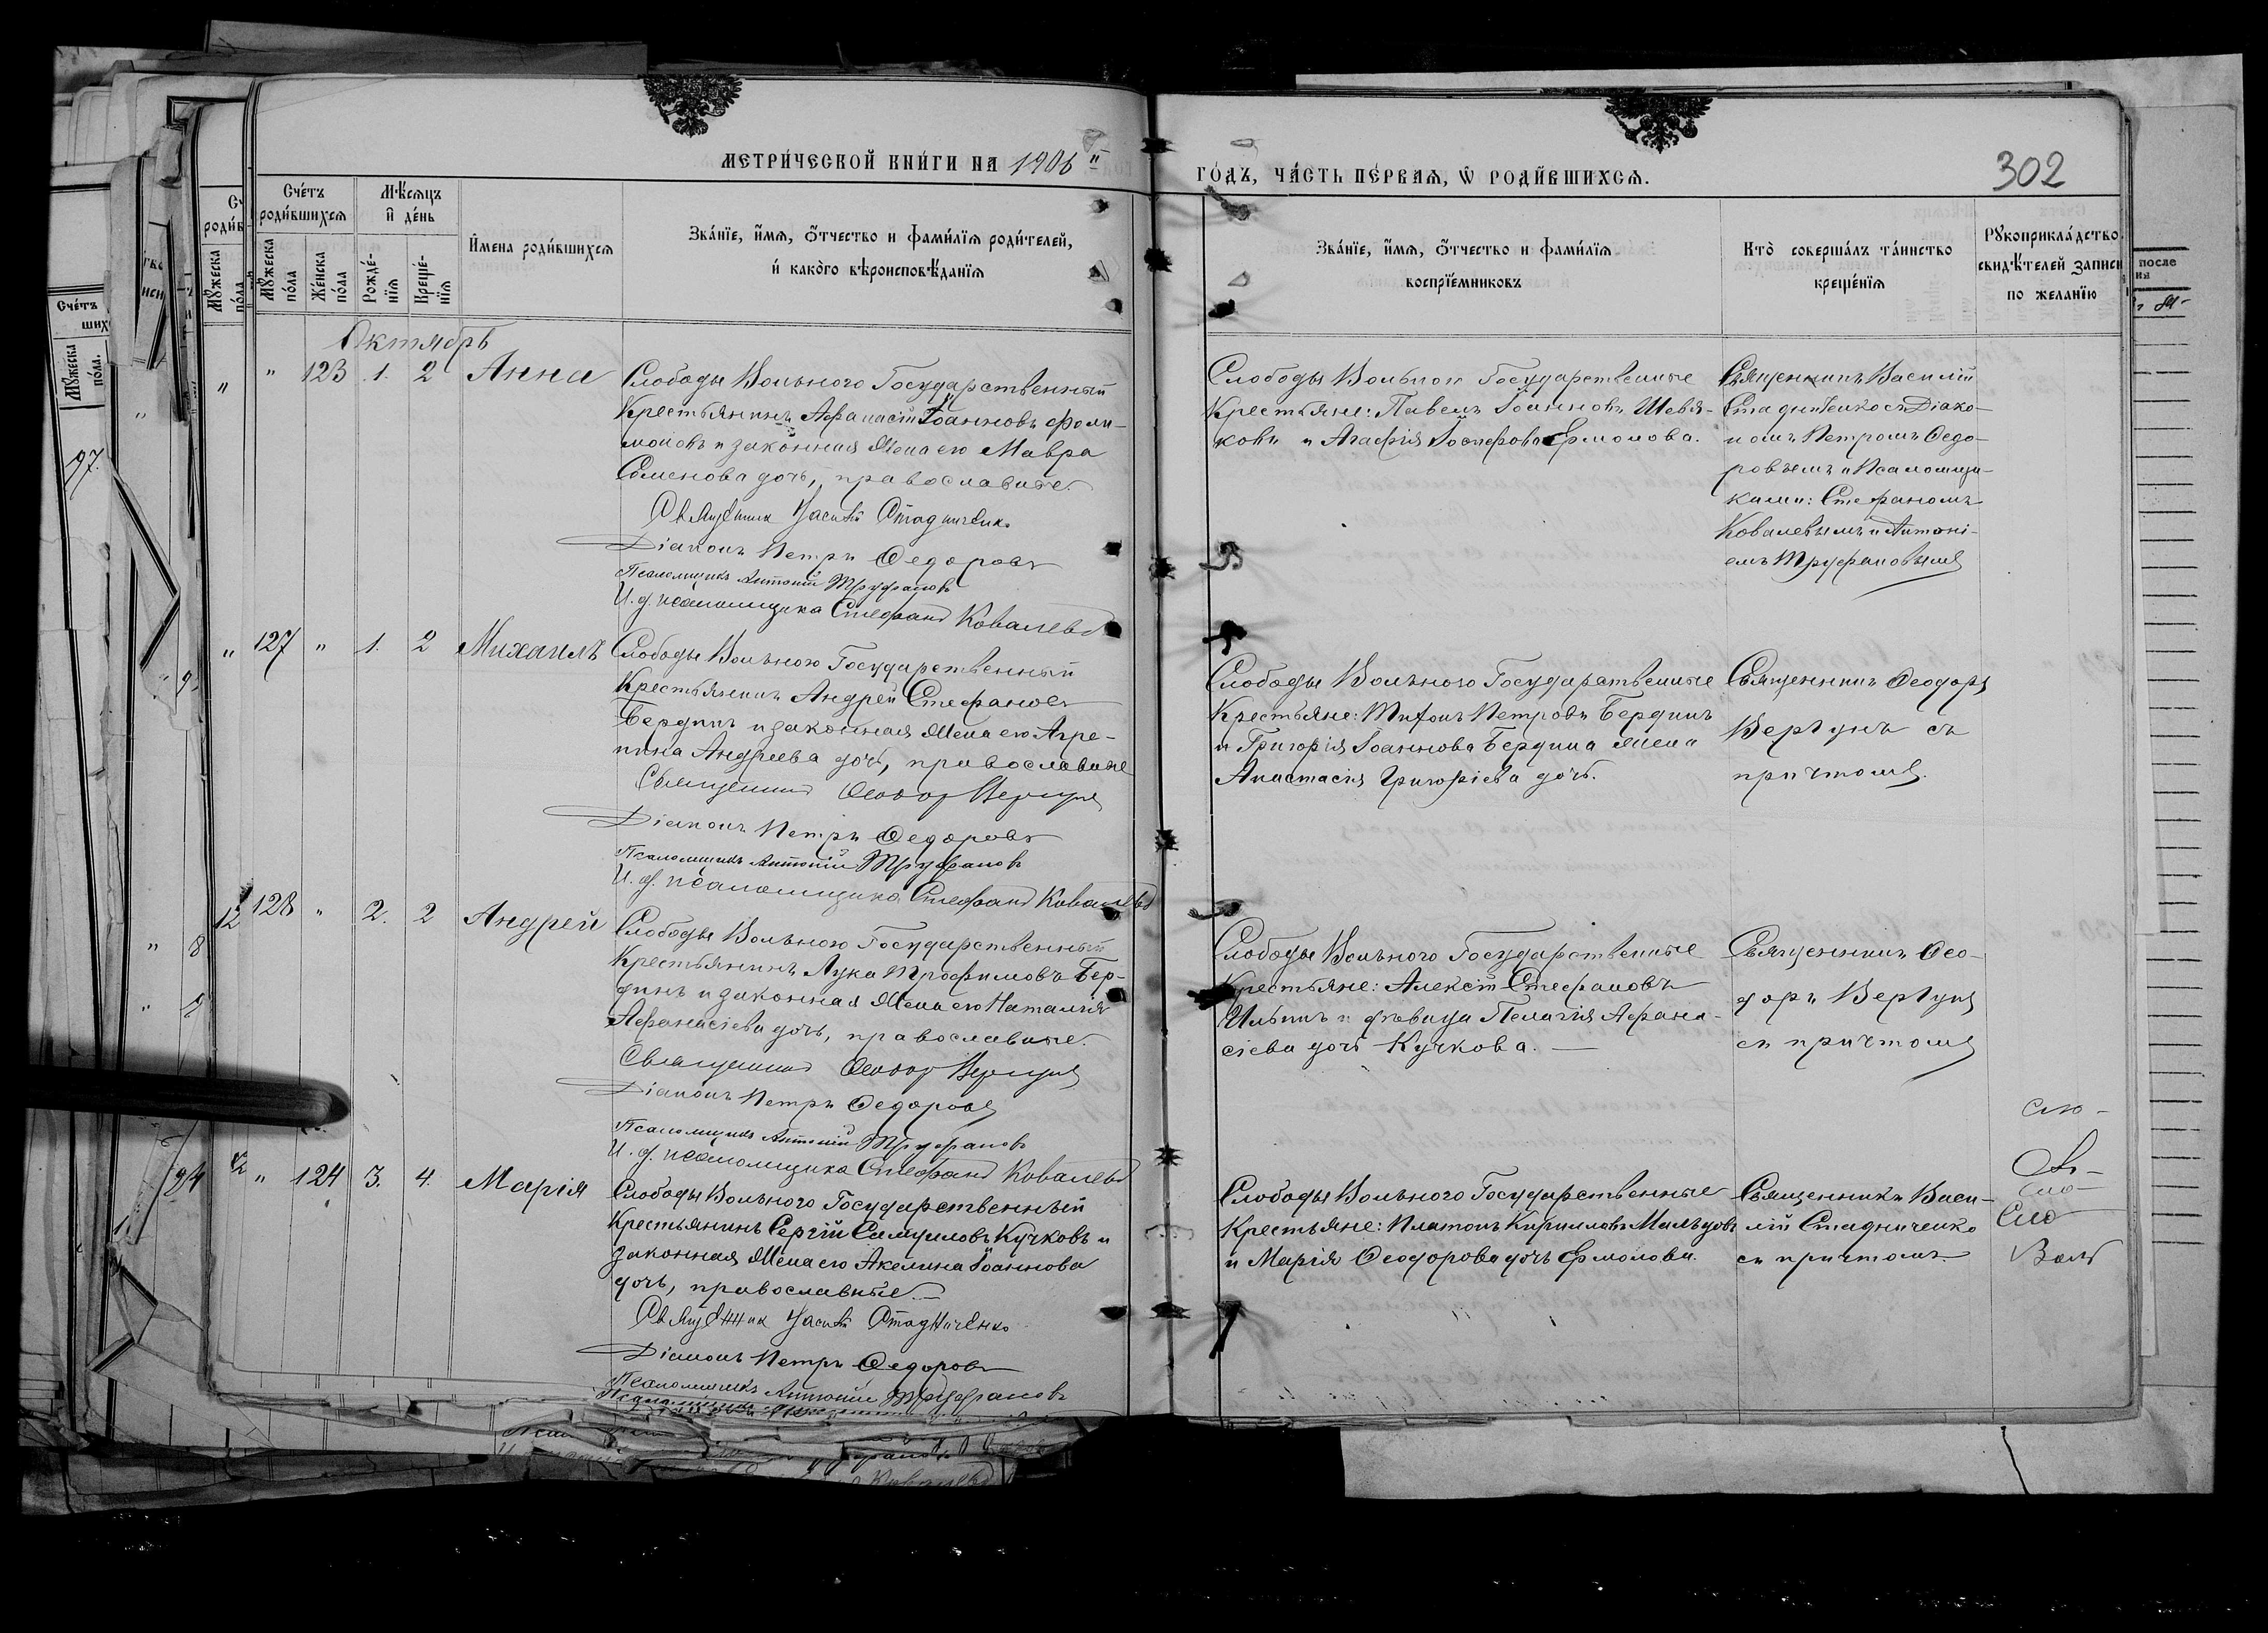 МЕТРИ́ЧЕСКОЙ КНИ́ГИ НА 1906
ГО́ДЪ, ЧА́СТЬ ПЕ́РВАЯ, Ѿ РОДИ́ВШИХСЯ.
302
Сче́тъ роди́вшихся
Мѣсяцъ и де́нь
Мꙋжеска по́ла
Же́нска по́ла
Рожде́нїя
Креще́нїя
И́мена роди́вшихся
Зва́нїе, и́мя, ѻ҆́тчество и фами́лїя роди́телей,
и҆ како́го вѣроисповѣ́данїя
Зва́нїе, и́мя, ѻ҆́тчество и фами́лїя
воспрїе́мниковъ
Кто̀ соверша́лъ та́инство
креще́нїя
Рꙋкоприкла́дство
свидѣ́телей записи
по жела́нїю
Октябрь
" 123 1. 2 Анна
Слободы Вольного Государственный
Крестьянинъ Афанасій Іоанновъ Фили-
моновъ и законная жена его Мавра
Семенова дочь, православные.
Священник Василій Стадниченко
Діаконъ Петръ Федоровъ
Псаломщикъ Антоній Труфановъ
И. д. псаломщика Стефанъ Ковалевъ
Слободы Вольной Государственные
Крестьяне: Павелъ Іоанновъ Шевя-
ковъ и Агафія Іосифова Ермолова.
Священникъ Василій
Стадниченко съ Діако-
номъ Петромъ Федо-
ровымъ и Псаломщи-
ками: Стефаномъ
Ковалевымъ и Антоні-
емъ Труфановымъ
127 " 1. 2 Михаилъ
Слободы Вольного Государственный
Крестьянинъ Андрей Стефановъ
Бердинъ и законная жена его Агре-
пина Андреева дочь, православные
Священникъ Феодоръ Вергунъ
Діаконъ Петръ Федоровъ
Псаломщикъ Антоній Труфановъ
И. д. псаломщика Стефанъ Ковалевъ
Слободы Вольного Государственные
Крестьяне: Тихонъ Петровъ Бердинъ
и Григорія Іоаннова Бердина жена
Анастасія Григоріева дочь.
Священникъ Феодоръ
Вергунъ съ
причтомъ.
128 " 2. 2 Андрей
Слободы Вольного Государственный
Крестьянинъ Лука Трофимовъ Бер-
динъ и законная жена его Наталія
Афанасіева дочь, православные.
Священникъ Феодоръ Вергунъ
Діаконъ Петръ Федоровъ
Псаломщикъ Антоній Труфановъ
И. д. псаломщика Стефанъ Ковалевъ
Слободы Вольного Государственные
Крестьяне: Алексій Стефановъ
Ильинъ и дѣвица Пелагія Афана-
сіева дочь Кучкова.
Священникъ Фео-
доръ Вергунъ
съ причтомъ
" 124 3. 4. Марія
Слободы Вольного Государственный
Крестьянинъ Сергій Самуиловъ Кучковъ и
законная жена его Акелина Іоаннова
дочь, православные.
Священник Василій Стадниченко
Діаконъ Петръ Федоровъ
Псаломщикъ Антоній Труфановъ
Слободы Вольного Государственные
Крестьяне: Платонъ Кирилловъ Мальцовъ
и Марія Феодорова дочь Ермолова.
Священникъ Васи-
лій Стадниченко
съ причтомъ.